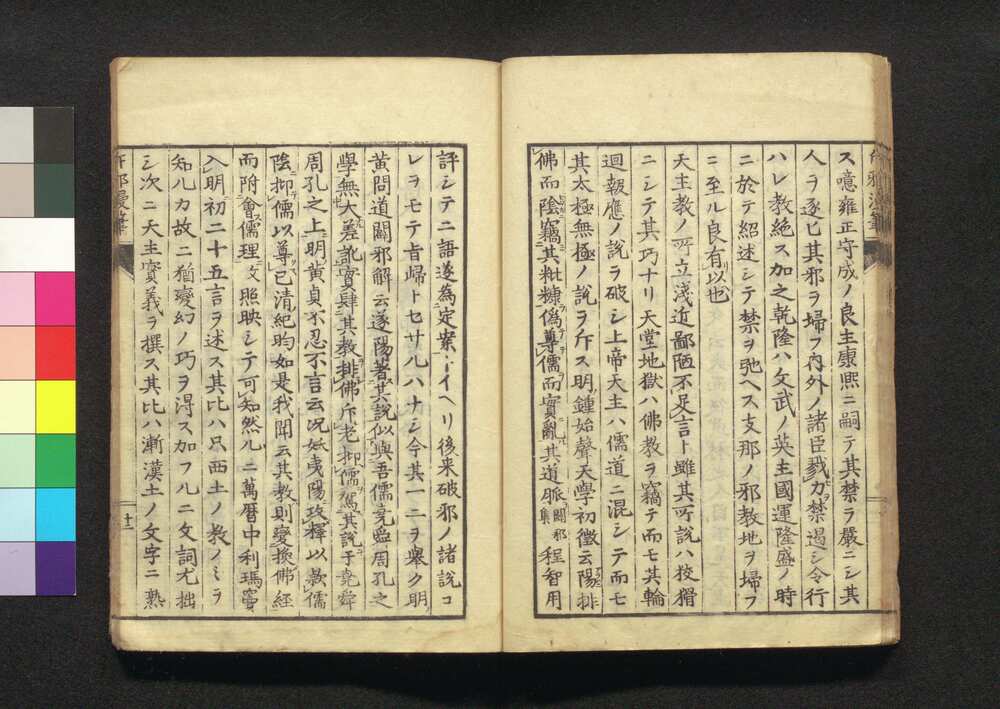 ス噫雍正守成ノ良主康熙ニ嗣テ其禁ヲ嚴ニシ其
人ヲ逐ヒ其邪ヲ埽フ内外ノ諸臣戮力禁遏シ令行
ハレ教絶ス加之乾隆ハ文武ノ英主國運隆盛ノ時
ニ於テ紹述シテ禁ヲ弛ヘス支那ノ邪教地ヲ埽フ
ニ至ル良有以也
天主教ノ所立淺近鄙陋不足言ト雖其所說ハ狡猾
ニシテ其巧ナリ天堂地獄ハ佛教ヲ竊テ而モ其輪
迴報應ノ說ヲ破シ上帝天主ハ儒道ニ混シテ而モ
其太極無極ノ說ヲ斥ス明鍾始聲天學初徴云陽排
佛而陰竊其粃糠僞尊儒而實亂其道脈闢邪集程智用
評シテ二語遂為定案トイヘリ後来破邪ノ諸說コ
レヲモテ旨歸トセサルハナシ今其一二ヲ舉ク明
黄問道闢邪解云遂陽著其說似與吾儒堯舜周孔之
學無大差訛實肆其教排佛斥老抑儒駕其說于堯舜
周孔之上明黄貞不忍不言云況妖夷陽攻釋以款儒
陰抑儒以尊已清紀昀如是我聞云其教則變換佛經
而附會儒理文照映シテ可知然ルニ萬曆中利瑪竇
入明初二十五言ヲ述ス其比ハ只西土ノ教ノミヲ
知ルカ故ニ猶變幻ノ巧ヲ得ス加フルニ文詞尤拙
シ次ニ天主實義ヲ撰ス其比ハ漸漢土ノ文字ニ熟
十三